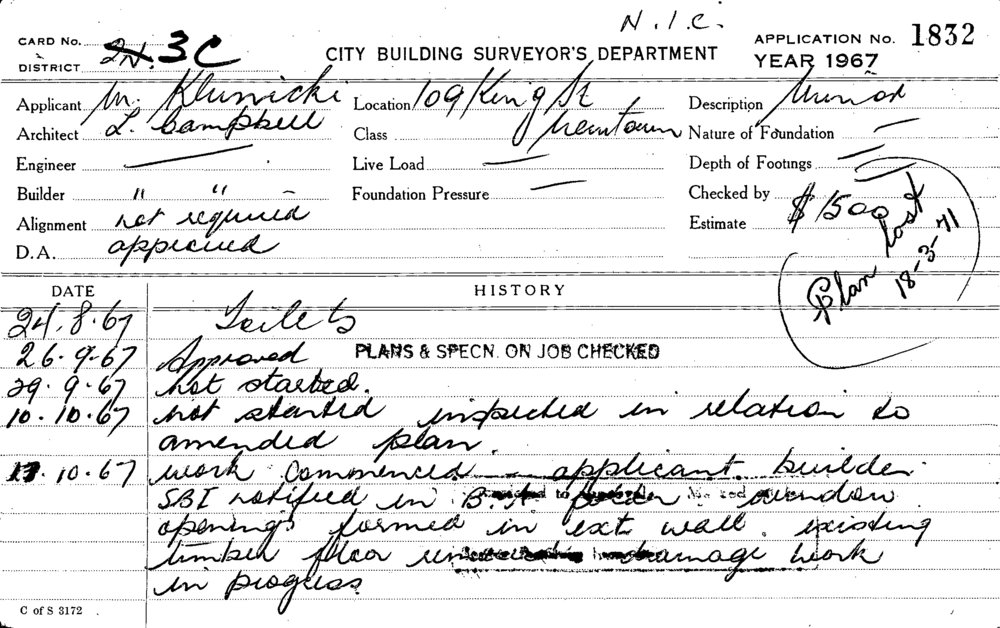 N.I.C.
CARD No. 3C
DISTRICT 2N.
CITY BUILDING SURVEYOR'S DEPARTMENT
APPLICATION No. 1832
YEAR 1967
Applicant M. Klunicki Location 109 King St Description Minor
Architect L. Campbell Class Newtown Nature of Foundation —
Engineer — Live Load — Depth of Footings —
Builder " " – Foundation Pressure — Checked by
Alignment not required Estimate $1500
D.A. approved
Plan lost
18-3-71
DATE HISTORY
24.8.67 Toilets
26.9.67 Approved PLANS & SPECN. ON JOB CHECKED
29.9.67 not started.
10.10.67 not started inspected in relation to
amended plan.
17.10.67 work commenced – applicant builder
SBI notified in B.A. folder window
openings formed in ext wall. existing
timber floor drainage work
in progress
C of S 3172